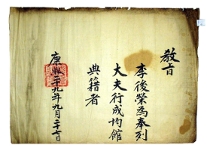 教旨
李後榮爲奉列
大夫行成均館
典籍者
康熙二十九年九月二十七日